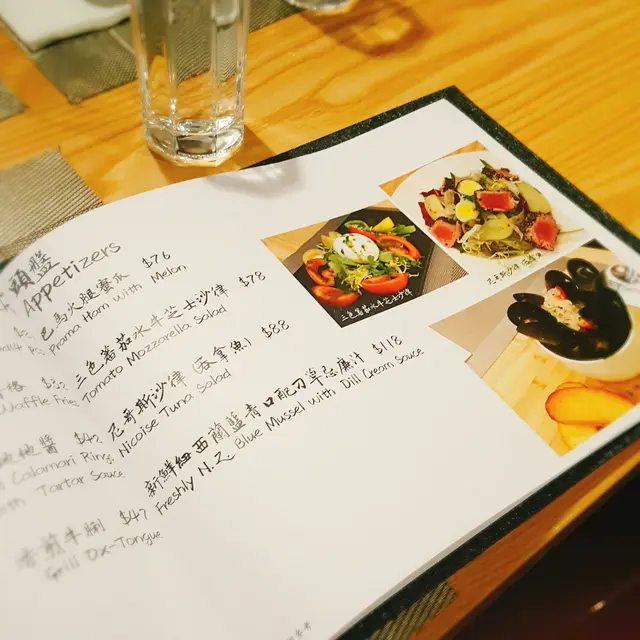 頭盤
Appetizers
巴馬火腿蜜瓜 $76
Prama Ham with Melon
三色蕃茄水牛芝士沙律 $78
Tomato Mozzarella Salad
尼哥斯沙律 (吞拿魚) $88
Nicoise Tuna Salad
新鮮紐西蘭藍青口配刁草忌廉汁 $118
Freshly N.Z. Blue Mussel with Dill Cream Sauce
Waffle Fries
Calamari Rings
with Tartar Sauce
牛脷 $47
Grill Ox-Tongue
三色蕃茄水牛芝士沙律